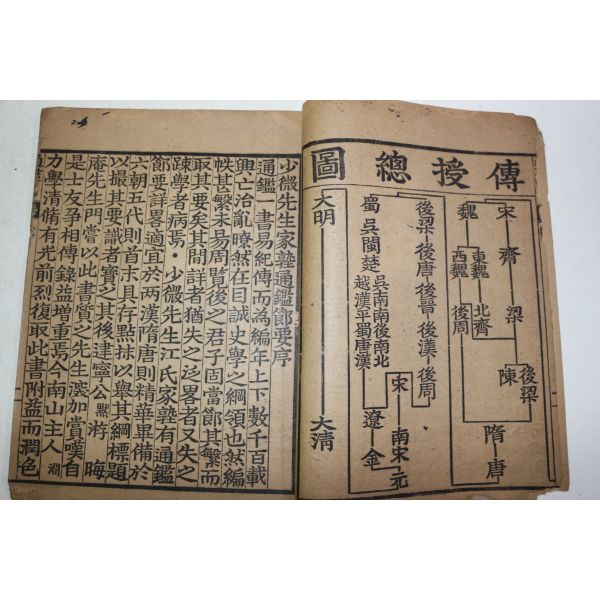 傳授總圖
宋 齊 梁 陳 後梁
魏 東魏 西魏 北齊 後周 隋 唐
後梁 後唐 後晉 後漢 後周
宋 南宋 元
蜀 吳閩楚 吳南南後南北
越漢平蜀唐漢
遼 金
大明 大清
少微先生家塾通鑑節要序
通鑑一書易紀傳而為編年上下數千百載
興亡治亂瞭然在目誠史學之綱領也然編
帙甚繁未易周覽後之君子固當節其繁而
取其要矣其間詳者猶失之泛畧者又失之
疎學者病焉・少微先生江氏家塾有通鑑
節要詳畧適宜於兩漢隋唐則精華畢備於
六朝五代則首末具存點抹以舉其綱標題
以撮其要識者寶之其後建寧公默游 晦
庵先生門嘗以此書質之先生深加賞嘆自
是士友爭相傳錄益增重焉今南山主人淵
力學清脩有光前烈復取此書附益而潤色